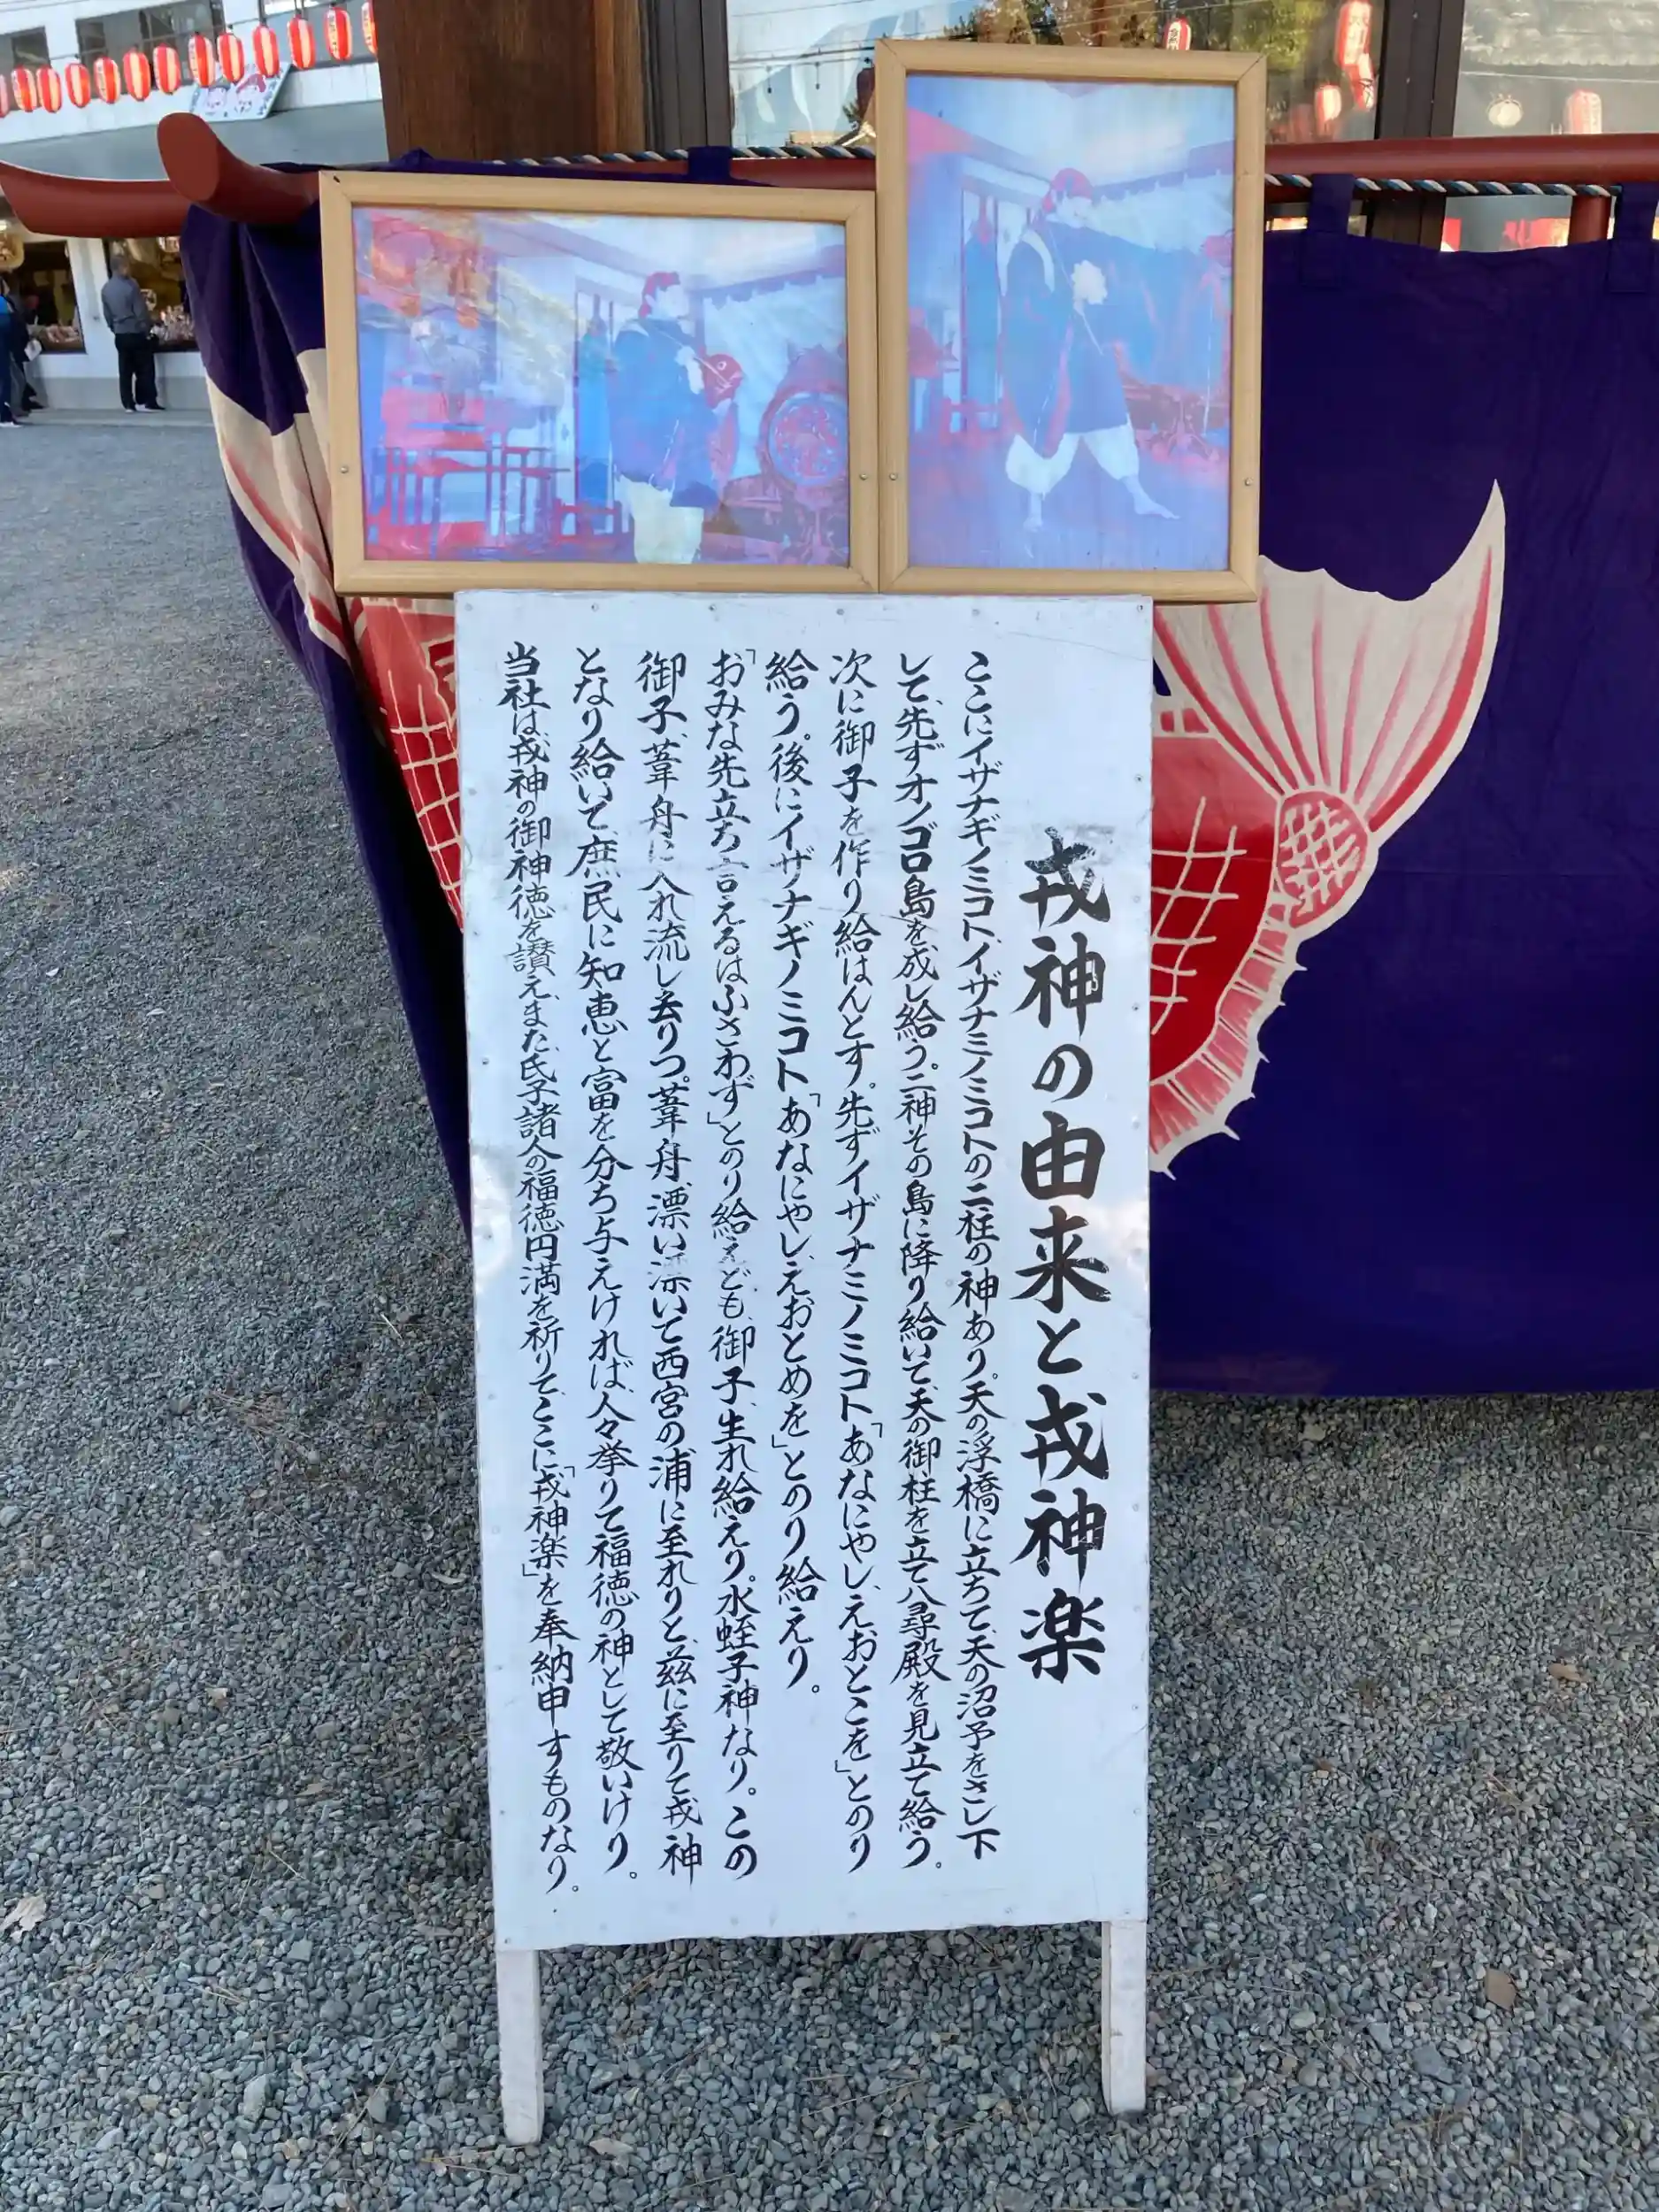 戎神の由来と戎神楽
ここにイザナギノミコト、イザナミノミコトの二柱の神あり。天の浮橋に立ちて、天の沼予をさし下
して、先ずオノゴロ島を成し給う。二神その島に降り給いて、天の御柱を立て八尋殿を見立て給う。
次に御子を作り給はんとす。先ずイザナミノミコト「あなにやし、えおとこを」とのり
給う。後にイザナギノミコト「あなにやし、えおとめを」とのり給えり。
「おみな先立ち言えるはふさわず」とのり給えども、御子、生れ給えり。水蛭子神なり。この
御子、葦舟に入れ流し去りつ。葦舟、漂い漂いて西宮の浦に至れりと、茲に至りて戎神
となり給いて、庶民に知恵と富を分ち与えければ、人々挙りて福徳の神として敬いけり。
当社は、戎神の御神徳を讃え、また、氏子諸人の福徳円満を祈りて、ここに「戎神楽」を奉納申すものなり。